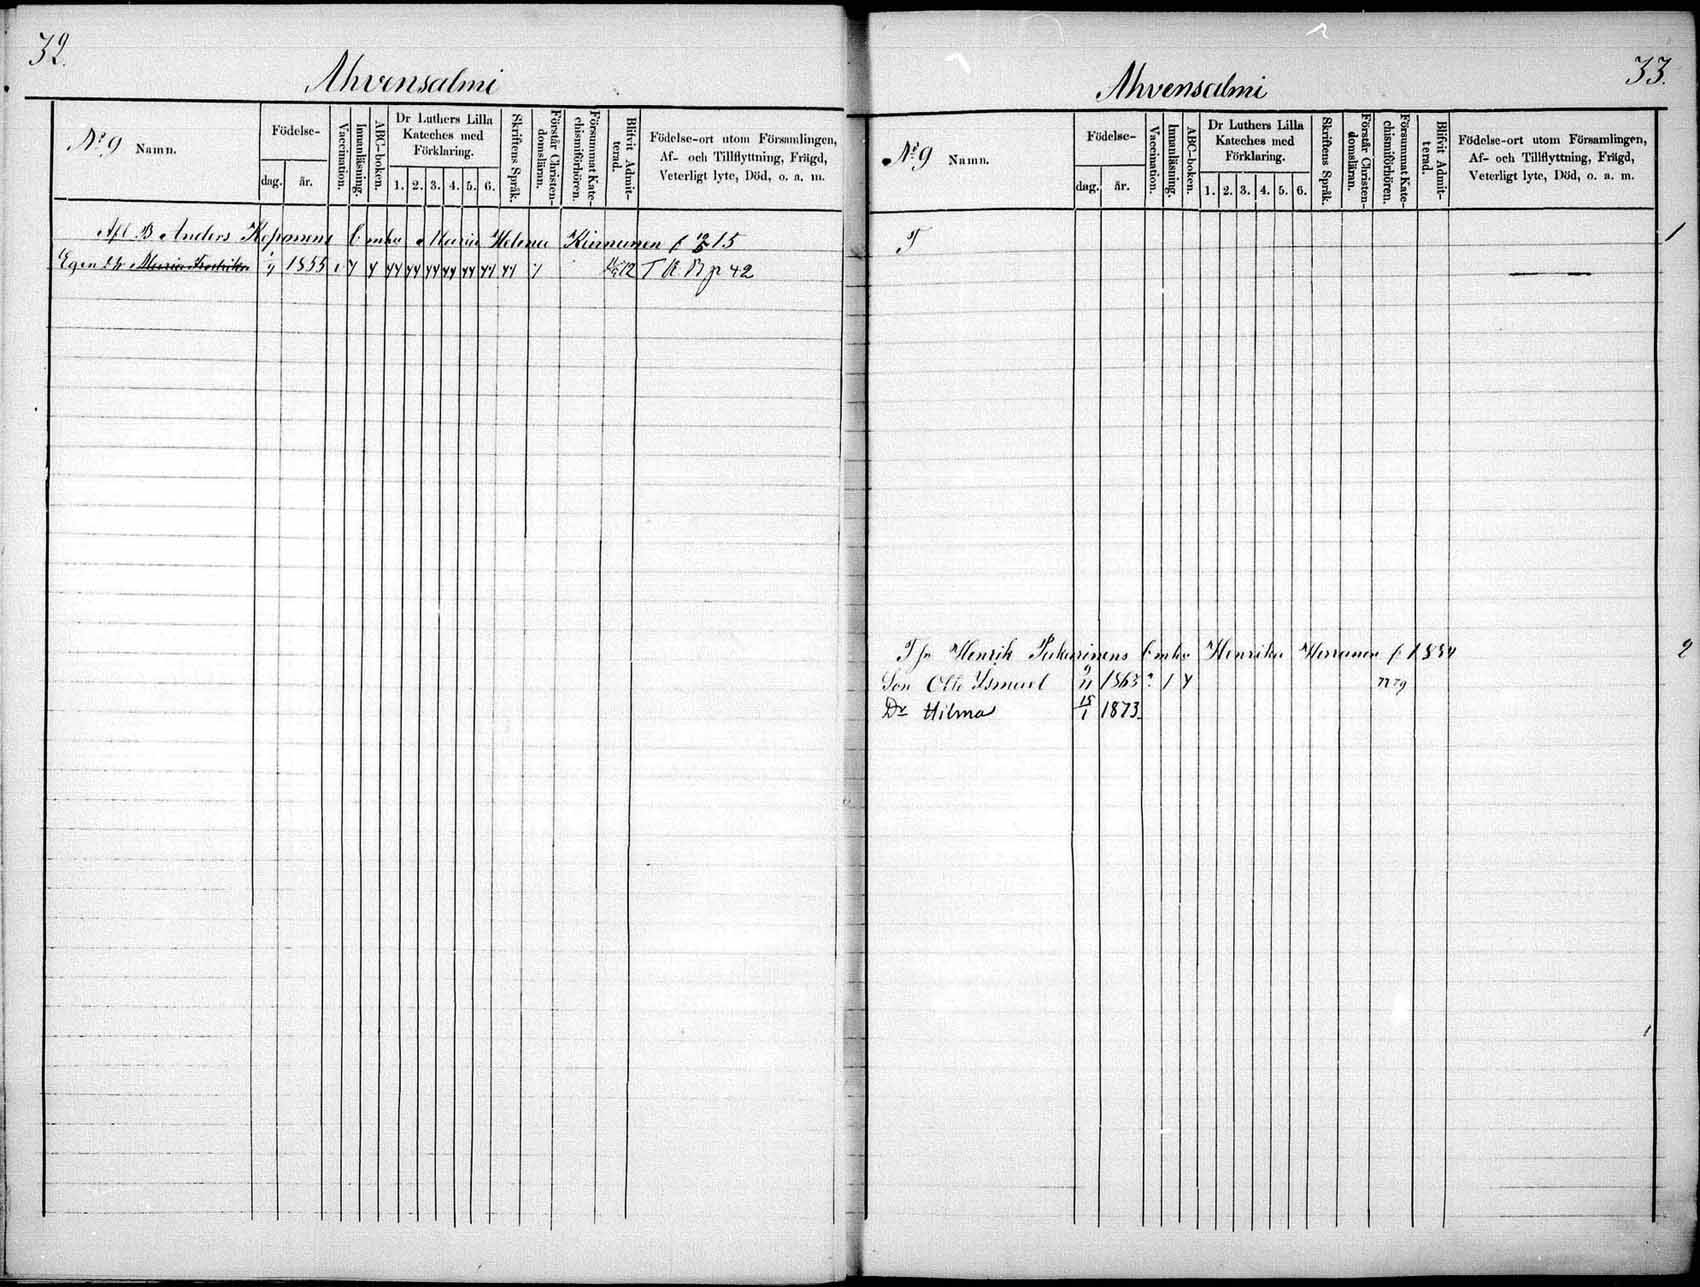 32.
Ahvensalmi
No 9 Namn.
Födelse-
dag.
år.
Vaccination.
Innanläsning.
ABC-boken.
Dr Luthers Lilla
Kateches med
Förklaring.
1. 2. 3. 4. 5. 6.
Skriftens Språk.
Förstår Christen-
domsläran.
Försummat Kate-
chismiförhören.
Blifvit Admit-
terad.
Födelse-ort utom Församlingen,
Af- och Tillflyttning, Frägd,
Veterligt lyte, Död, o. a. m.
Afl B Anders Koponens Enka Maria Helena Kinnunen f 15
Egen Dr Maria Fredrika 1855 T K B p 42
33.
Ahvensalmi
No 9 Namn.
Födelse-
dag.
år.
Vaccination.
Innanläsning.
ABC-boken.
Dr Luthers Lilla
Kateches med
Förklaring.
1. 2. 3. 4. 5. 6.
Skriftens Språk.
Förstår Christen-
domsläran.
Försummat Kate-
chismiförhören.
Blifvit Admit-
terad.
Födelse-ort utom Församlingen,
Af- och Tillflyttning, Frägd,
Veterligt lyte, Död, o. a. m.
T
1
Henrik Enka Henrika f. 1834
2
Son Otto Ismael 9/11 1863
Dr Hilma 15/1 1873